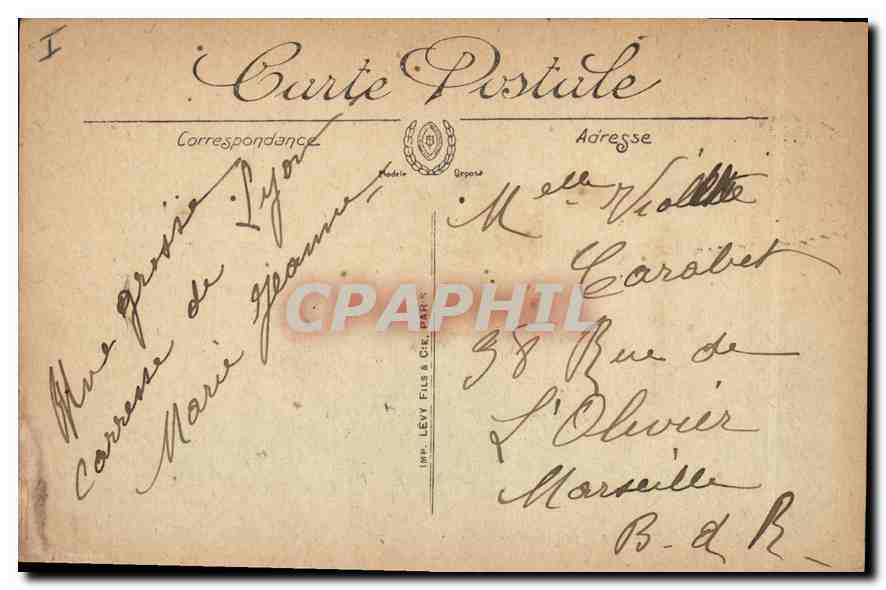 I
Carte Postale
Correspondance
Adresse
Modèle Déposé
Une grosse
carresse de Lyon
Marie Jeanne
Melle Violette
Carabet
98 Rue de
L'Olivier
Marseille
B. d R.
IMP. LÉVY FILS & CIE, PARIS
CPAPHIL